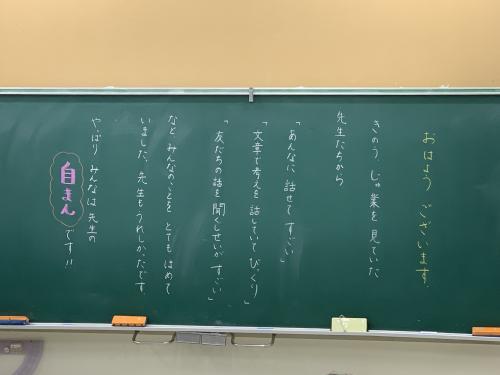 おはよう ございます。
きのう、じゅ業を見ていた
先生たちから
「あんなに 話せて すごい」
「文章で考えを 話していて びっくり」
「友だちの話を聞くしせいが すごい」
など、みんなのことを とても ほめて
いました。先生もうれしかったです。
やっぱり みんなは 先生の
自まん です!!